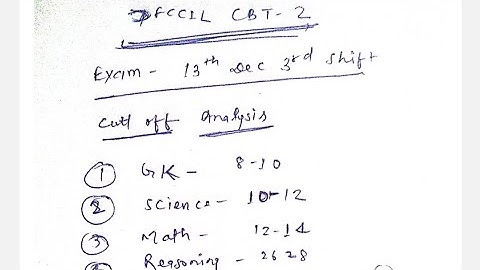 DFCCIL CBT-2
Exam - 13th Dec 3rd shift
Cut off Analysis
1 GK - 8-10
2 Science - 10-12
3 Math - 12-14
Reasoning - 26 28